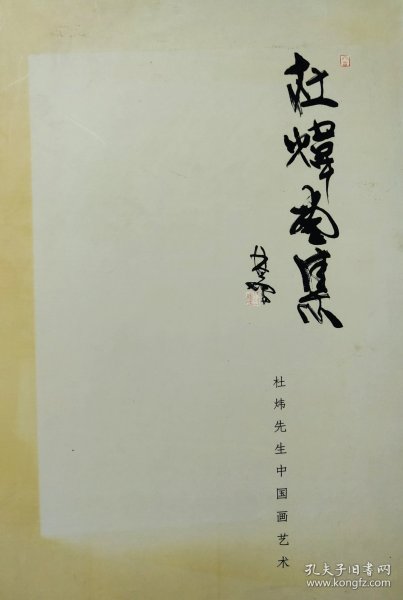 杜煒画集
杜炜先生中国画艺术
孔夫子旧书网
www.kongfz.com